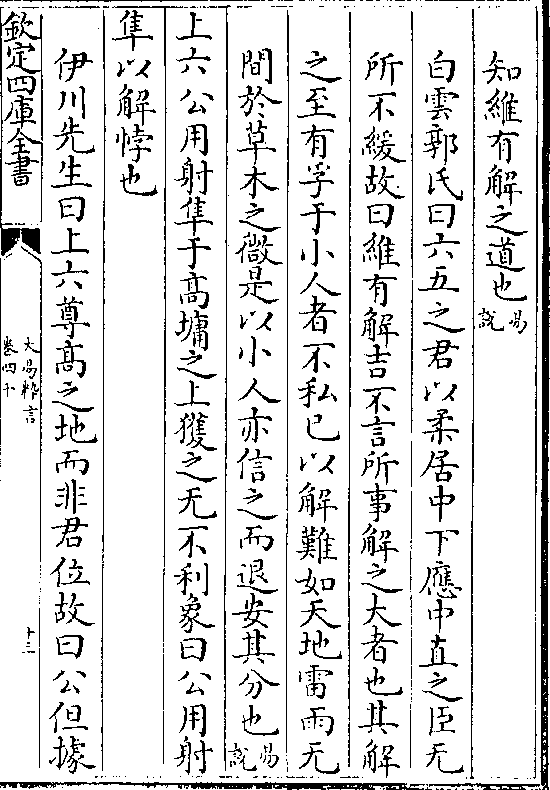 知維有解之道也易說
白雲郭氏曰六五之君以柔居中下應中直之臣无
所不緩故曰維有解吉不言所事解之大者也其解
之至有孚于小人者不私已以解難如天地雷雨无
間於草木之微是以小人亦信之而退安其分也易說
上六公用射隼于髙墉之上獲之无不利象曰公用射
隼以解悖也
伊川先生曰上六尊髙之地而非君位故曰公但據
欽定四庫全書
大易粹言
卷四十
十三